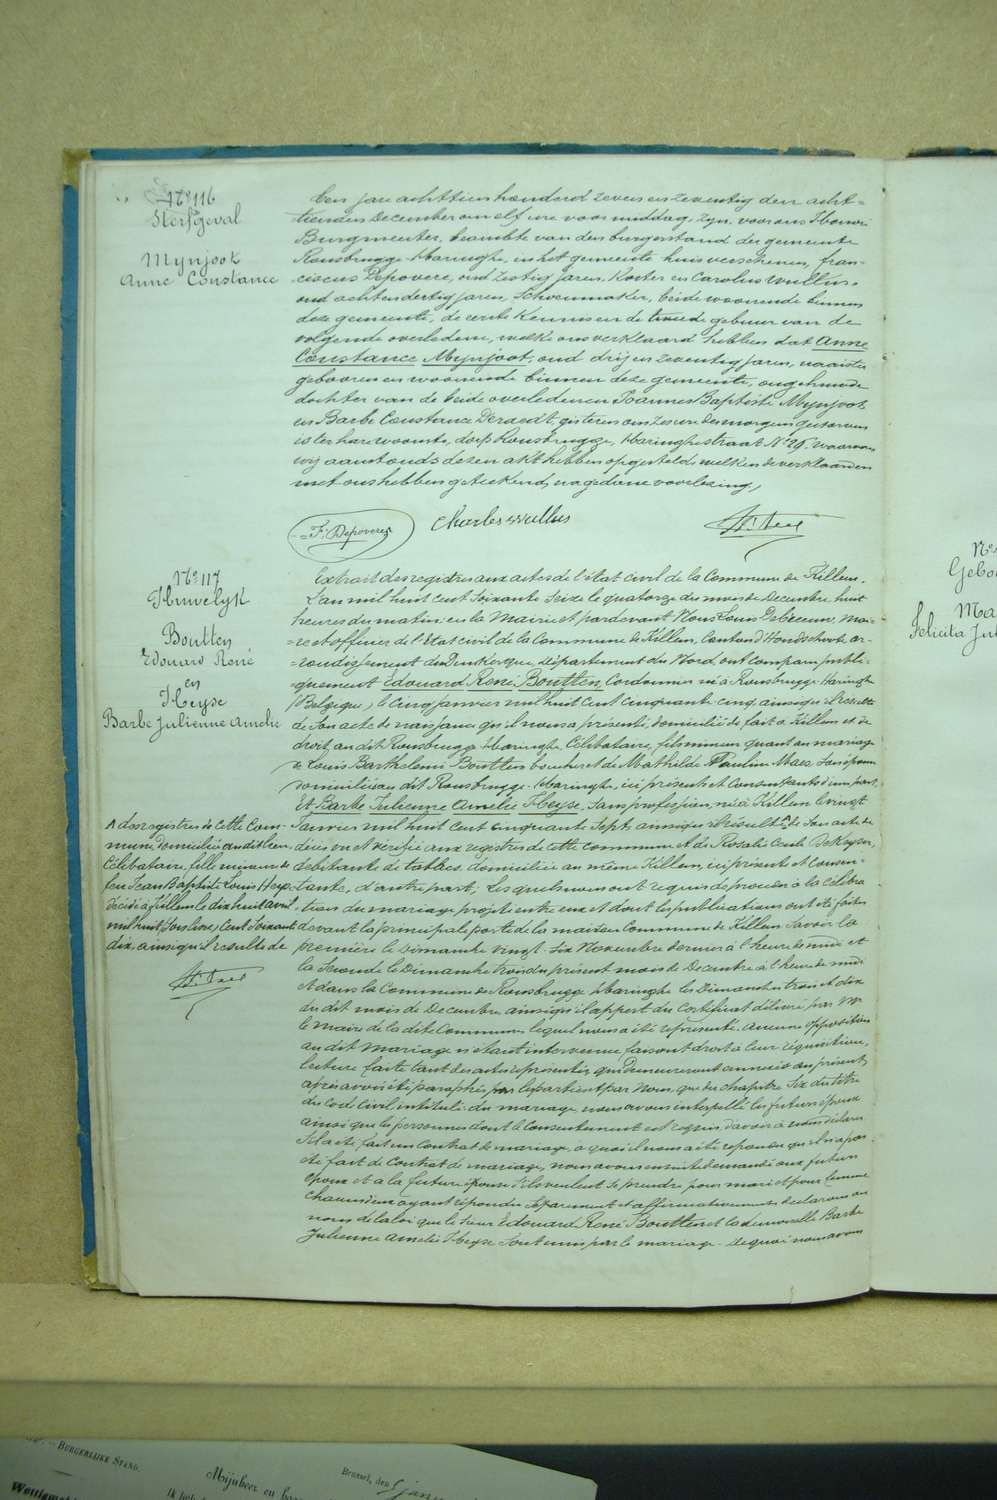 Nº 116
Sterfgeval
Mynjoot
Anne Constance
Een jaar achttien honderd zeven en zeventig den acht=
=tienden December om elf ure voormiddag, zyn voor ons
Burgmeester, beambte van den burgerstand der gemeente
Rousbrugge-Haringhe, in het gemeente huis verschenen, fran=
=ciscus Depovere, oud zestig jaren, Koster en Carolus Wullus,
oud acht en dertig jaren, Schoenmaker, beide woonende binnen
deze gemeente, de eerste Kennis en de tweede gebuur van de
volgende overledene, welke ons verklaard hebben dat Anne
Constance Mynjoot, oud drij en zeventig jaren, naaister
gebooren en woonende binnen deze gemeente, ongehuwde
dochter van de beide overledenen Joannes Baptiste Mynjoot
en Barbe Constance Deraedt, gisteren om zes ure des morgens gestorven
is ter hare woonste, dorp Rousbrugge, Haringhestraat Nº 29. waarvan
wij aanstonds dezen akt hebben opgesteld, welken de verklaarders
met ons hebben geteekend, na gedane voorlezing,
F. Depovere
Charles Wullus
Nº 117
Huwelyk
Boutten
Edouard René
en
Heyse
Barbe Julienne Amelie
Extrait des registres aux actes de l'état civil de la Commune de Killem.
L'an mil huit cent Soixante Seize le quatorze du mois de Decembre huit
heures du matin en la Mairie et pardevant Nous Louis Debreeun, mai=
=re et officier de l'état civil de la Commune de Killem, Canton d'Hondschoote, ar=
=rondissement de Dunkerque, département du Nord, ont comparu publi=
=quement Edouard René Boutten, Cordonnier né à Rousbrugge-Haringhe
(Belgique), le Cinq janvier mil huit cent cinquante cinq, ainsi qu'il resulte
de son acte de naissance qu'il nous a présenté, domicilié de fait à Killem et de
droit, au dit Rousbrugge-Haringhe, Célibataire, fils mineur quant au mariage
de Louis Barthelemi Boutten boucher et de Mathilde Pauline Maes Sans profession
domiciliés au dit Rousbrugge-Haringhe, ici présents et Consentants d'une part,
Et Barbe Julienne Amelie Heyse, Sans profession, née à Killem le vingt
Janvier mil huit Cent cinquante Sept, ainsi qu'il résulte de Son acte de
A des registres de cette Com=
mune, domiciliée au dit lieu
Célibataire, fille mineure de
feu Jean Baptiste Louis Heyse
décédé à Killem le dix huit avril
mil huit cent Soixante
dix, ainsi qu'il resulte de
décès vu et vérifié aux registres de cette commune et de Rosalie Cecile DeKeyser,
débitante de tabacs, domiciliée au même Killem, ici présente et consen=
tante, d'autre part, Lesquels nous ont requis de procéder à la célébra
tion du mariage projeté entre eux et dont les publications ont été faites
devant la principale porte de la maison Commune de Killem Savoir la
première le Dimanche vingt-Six Novembre dernier à l'heure de midi et
la Seconde le Dimanche trois du présent mois de Decembre à l'heure de midi
Et dans la Commune de Rousbrugge Haringhe les Dimanches trois et dix
du dit mois de Decembre ainsi qu'il appert du Certificat délivré par Mr
le Maire de la dite Commune lequel nous a été représenté. Aucune opposition
au dit mariage n'étant intervenue, faisant droit à leur réquisition,
lecture faite tant des actes représentés, qui demeureront annexés au présent,
après avoir été paraphés par les parties et par Nous, que du chapitre Six du titre
du Code Civil intitulé du mariage, nous avons interpellé les futurs époux
ainsi que les personnes dont le Consentement est requis d'avoir à nous déclarer
S'il a été fait un Contrat de mariage, à quoi il nous a été répondu qu'il n'a pas
été fait de Contrat de mariage, nous avons ensuite demandé aux futurs
époux et à la future épouse s'ils veulent se prendre pour mari et pour femme
chacun d'eux ayant répondu Séparément et affirmativement déclarons au
nom de la loi que le Sieur Edouard René Boutten et la demoiselle Barbe
Julienne Amelie Heyse Sont unis par le mariage. De quoi nous avons
Nº
Gebo
Ma
Felicita Jul
BURGERLIJKE STAND.
Brussel, den
Mijnheer en
Ik